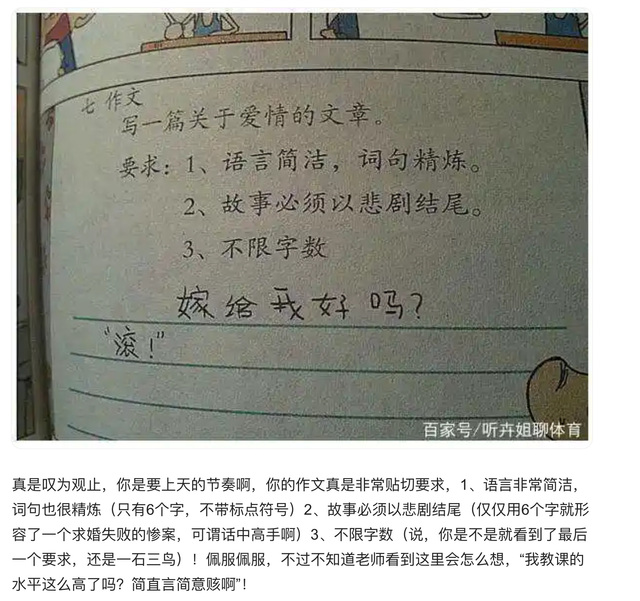 七 作文
写一篇关于爱情的文章。
要求：1、语言简洁，词句精炼。
2、故事必须以悲剧结尾。
3、不限字数
嫁给我好吗？
“滚！”
百家号/听卉姐聊体育
真是叹为观止，你是要上天的节奏啊，你的作文真是非常贴切要求，1、语言非常简洁，
词句也很精炼（只有6个字，不带标点符号）2、故事必须以悲剧结尾（仅仅用6个字就形
容了一个求婚失败的惨案，可谓话中高手啊）3、不限字数（说，你是不是就看到了最后
一个要求，还是一石三鸟）！佩服佩服，不过不知道老师看到这里会怎么想，“我教课的
水平这么高了吗？简直言简意赅啊”！